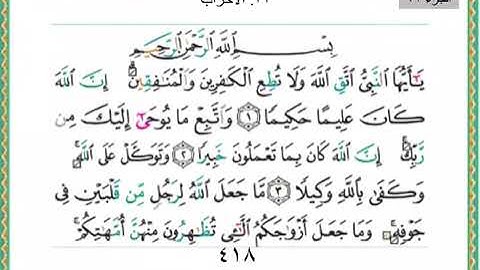 بِسْمِ اللَّهِ الرَّحْمَٰنِ الرَّحِيمِ
يَٰٓأَيُّهَا ٱلنَّبِيُّ ٱتَّقِ ٱللَّهَ وَلَا تُطِعِ ٱلْكَٰفِرِينَ وَٱلْمُنَٰفِقِينَ ۗ إِنَّ ٱللَّهَ
كَانَ عَلِيمًا حَكِيمًا ﴿١﴾ وَٱتَّبِعْ مَا يُوحَىٰٓ إِلَيْكَ مِن
رَّبِّكَ ۚ إِنَّ ٱللَّهَ كَانَ بِمَا تَعْمَلُونَ خَبِيرًا ﴿٢﴾ وَتَوَكَّلْ عَلَى ٱللَّهِ ۚ
وَكَفَىٰ بِٱللَّهِ وَكِيلًا ﴿٣﴾ مَّا جَعَلَ ٱللَّهُ لِرَجُلٍ مِّن قَلْبَيْنِ فِى
جَوْفِهِۦ ۚ وَمَا جَعَلَ أَزْوَٰجَكُمُ ٱلَّٰٓـِٔى تُظَٰهِرُونَ مِنْهُنَّ أُمَّهَٰتِكُمْ ۚ
٤١٨